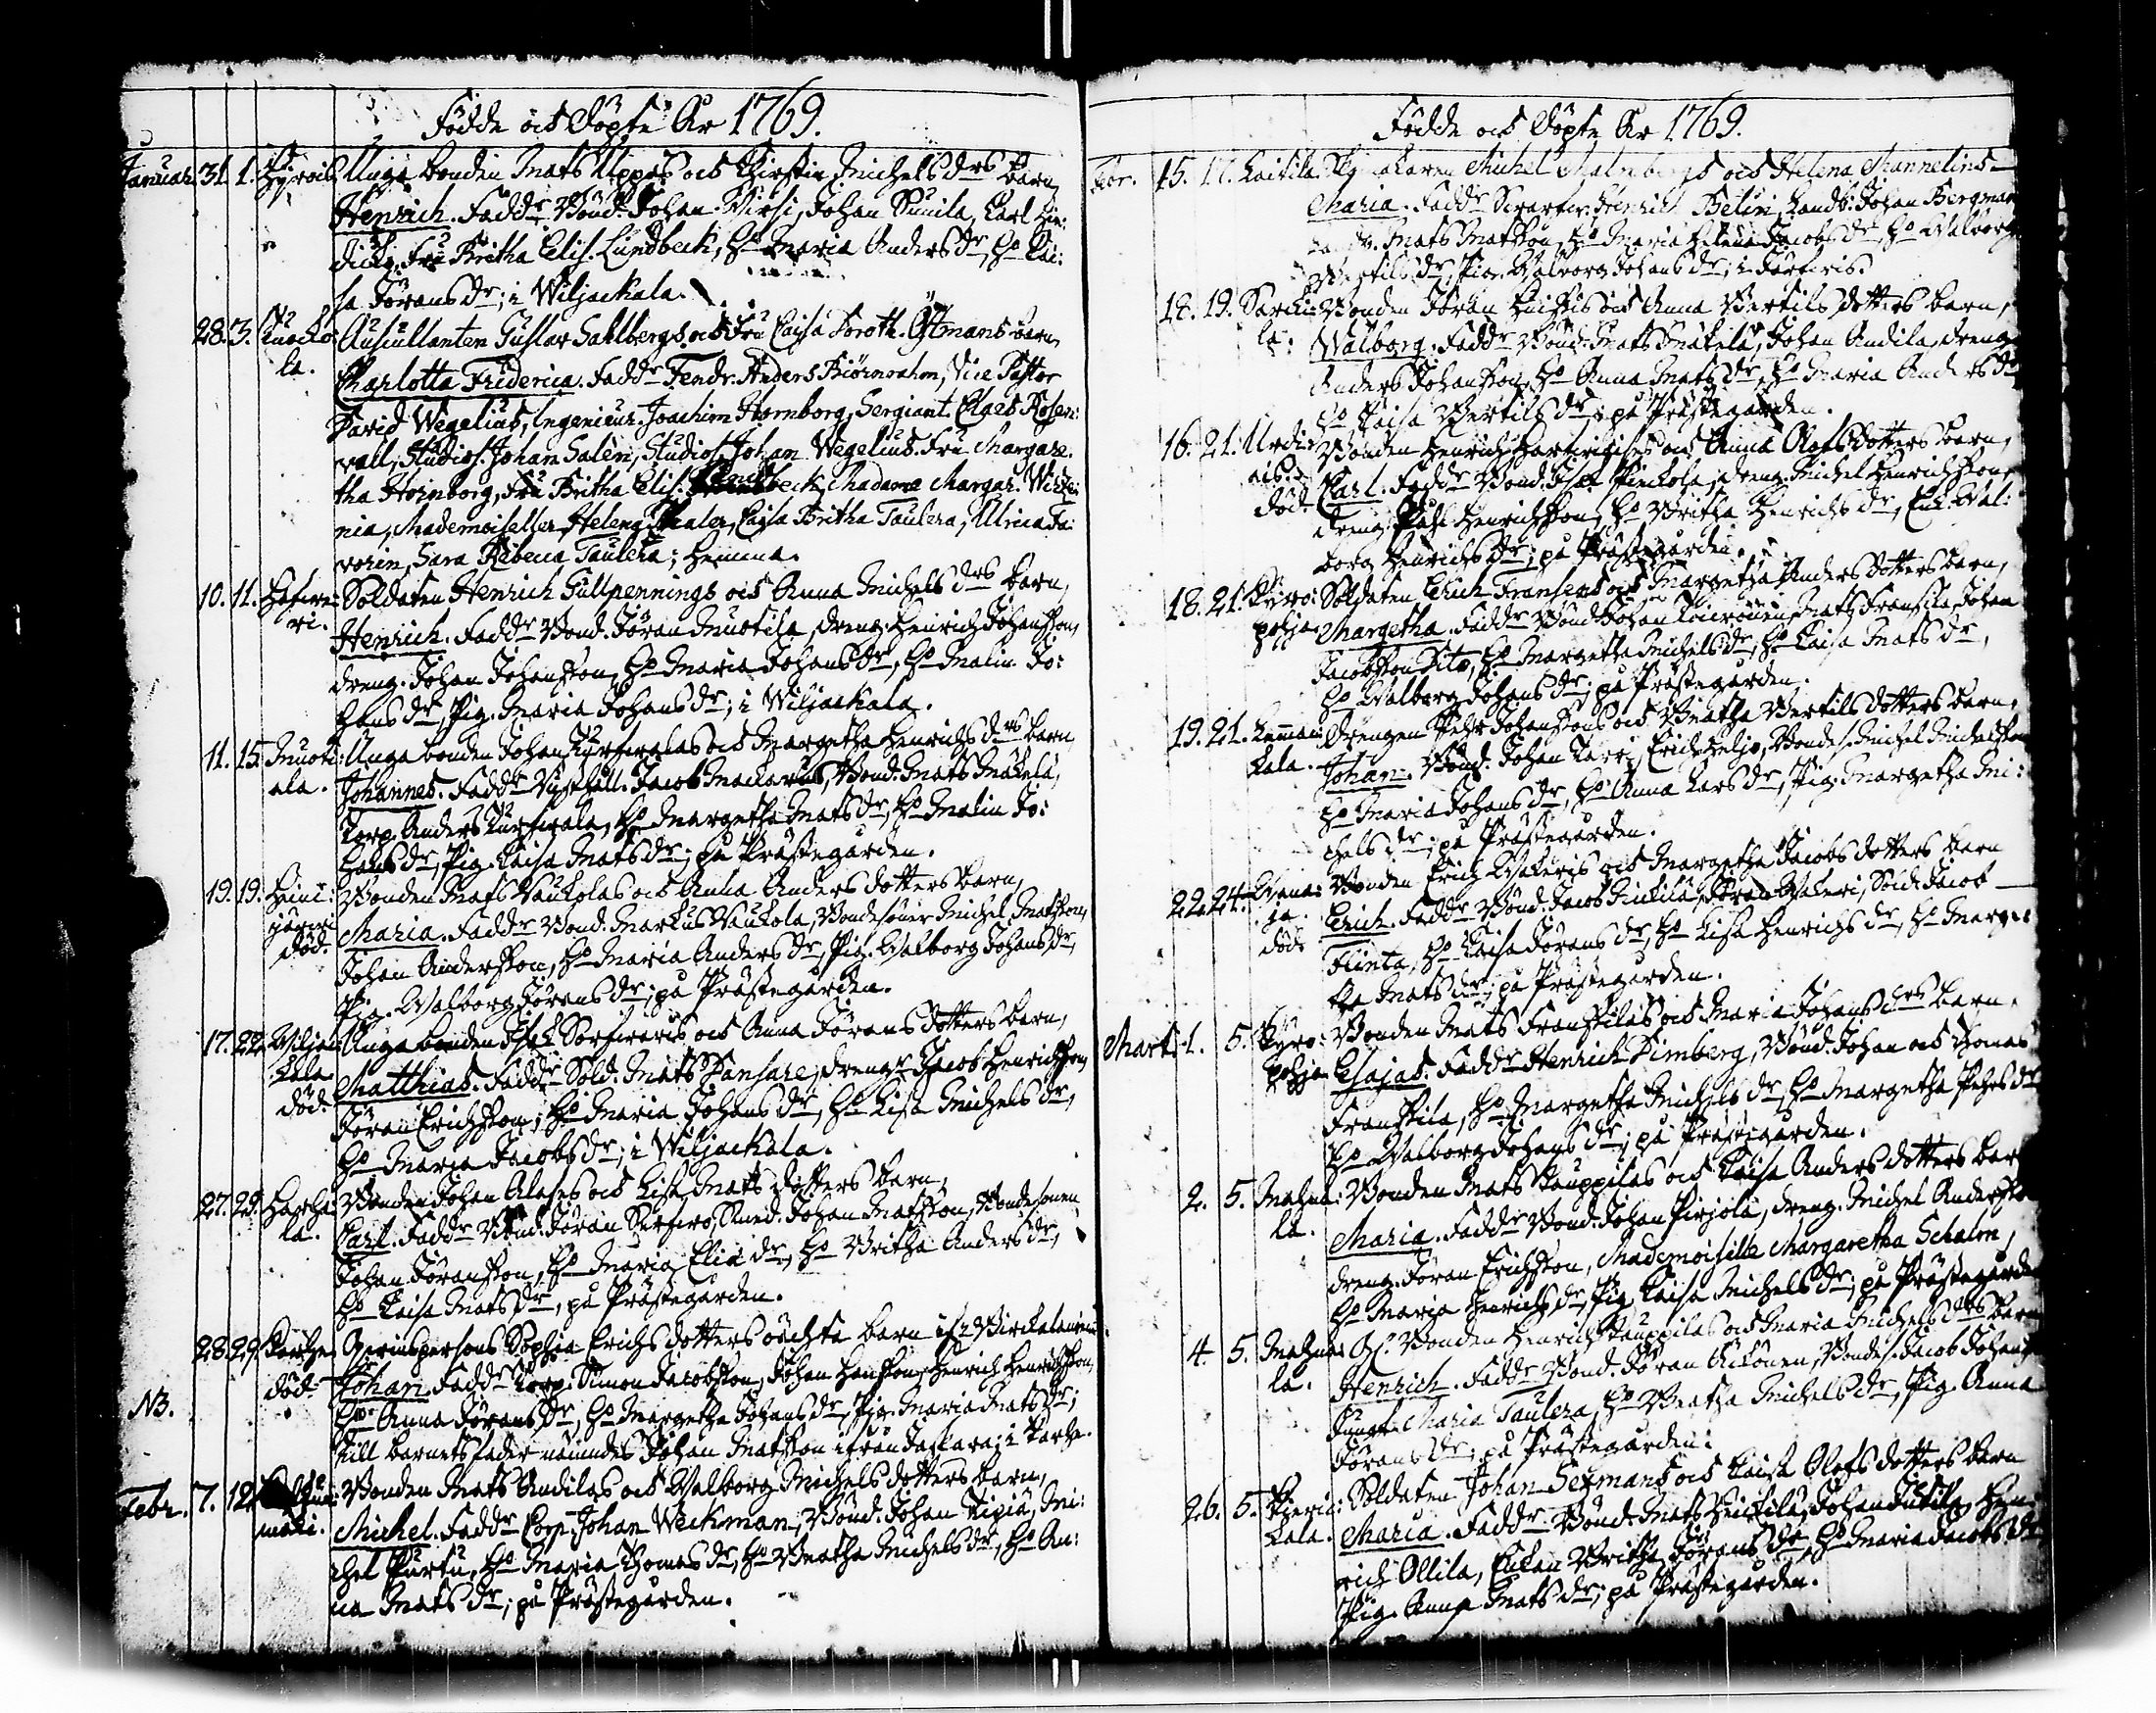 Födde och Döpte År 1769.
Januar. 31. 1. Hyrois Unga bonden Mats Uppas och Chirstin Michels drs barn,
Henrich. Faddr Bond. Johan Wirsi, Johan Sunila, Carl
Fru Britha Elis. Lundbeck, Ho Maria Anders dr, Ho Cai:
sa Jörans dr; i Wiljackala.
28. 3. Auscultanten Gustav Sahlbergs och Fru Caisa Doroth. Östmans barn,
la. Charlotta Friderica. Faddr Fendr. Anders Biörnram, Vice Pastor
David Wegelius, Ingenieur Joachim Hornborg, Sergiant Elges Rosen:
wall, Studios. Johan Salen, Studios. Johan Wegelius. Fru Margare:
tha Hornborg, Fru Britha Elis. Lundbeck, Madame Margar. Wirze:
nia, Mademoiseller Helena Thaler, Caisa Britha Taulera, Ulrica Fa:
vorin, Sara Rebecca Taulera; hemma.
10. 11. Soldaten Henrich Gullpennings och Anna Michels drs barn,
ri. Henrich. Faddr Bond. Jöran Muotila, dreng. Henrich Johansson,
dreng. Johan Johansson, Ho Maria Johans dr, Ho Malin Jo:
hans dr, Pig. Maria Johans dr; i Wiljackala.
11. 15. Muoti: Unga bonden Johan och Margetha Henrichs drs barn
ala. Johannes. Faddr Jacob Bond. Mats Mäkelä,
Torp. Anders Ho Margetha Mats dr, Ho Malin Jo:
hans dr, Pig. Caisa Mats dr; på Prästegården.
19. 19. Heini: Bonden Mats Naukolas och Anna Anders dotters barn,
järwi Maria. Faddr Bond. Markus Naukola, Bondesöner Michel Matsson,
död. Johan Andersson, Ho Maria Anders dr, Pig. Walborg Johans dr,
Pig. Walborg Jörans dr; på Prästegården.
17. 22. Wiljac: Unga bonden Isak och Anna Jörans dotters barn,
kala Matthias. Faddr Sold. Mats Pansare, drengr Jacob Henrichsson,
död. Jöran Erichsson; Ho Maria Johans dr, Ho Lisa Michels dr,
Ho Maria Jacobs dr; i Wiljackala.
27. 29. Bonden Johan och Lisa Mats dotters barn,
la. Carl. Faddr Bond. Jöran Smed. Johan Matsson, Bondesonen
Johan Jöransson, Ho Maria Elia dr, Ho Britha Anders dr,
Ho Caisa Mats dr, på Prästegården.
28. 29. Sophia Erichs dotters oächta barn
död Johan. Faddr Torp. Simon Jacobsson, Johan Hansson, Henrich Henrichsson,
NB. Ho Anna Jörans dr, Ho Margetha Johans dr, Pig. Maria Mats dr;
till barnets fader nämndes Johan Matsson ifrån
Febr. 7. 12. Bonden Mats Andilas och Walborg Michels dotters barn,
mäki. Michel. Faddr Corp. Johan Weckman, Bond. Johan Mi:
chel Purtu, Ho Maria Thomas dr, Ho Beatha Michels dr, Ho An:
na Mats dr; på Prästegården.
Födde och Döpte År 1769.
Febr. 15. 17. Laitila Michel Malmbergs och Helena Mannelins
Maria. Faddr Henrich Belin, Johan Bergman
Mats Matsson, Ho Maria Helena Jacobs dr, Ho Walborg
Bertils dr, Pig. Walborg Johans dr; i
18. 19. Sarki: Bonden Jöran och Anna Bertils dotters barn,
la: Walborg. Faddr Bond. Mats Mäkelä, Johan Andila, dreng
Anders Johansson, Ho Anna Mats dr, Ho Maria Anders dr
Ho Caisa Bertils dr, på Prästegården.
16. 21. Urdi: Bonden Henrich och Anna Olofs dotters barn,
död Carl. Faddr Bond. Isak dreng. Michel Henrichsson
dreng. Påhl Henrichsson, Ho Britha Henrichs dr, Enk. Wal:
borg Henrichs dr; på Prästegården.
18. 21. Kyro: Soldaten Erich Fransens och Margetha Anders dotters barn,
pohja. Margetha. Faddr Bond. Johan Mats Fransila, Johan
Jacobsson Dito, Ho Margetha Michels dr, Ho Caisa Mats dr,
Ho Walborg Johans dr; på Prästegården.
19. 21. Drengen Pehr Johanssons och Beatha Bertils dotters barn,
kala. Johan. Bond. Johan Erich Heljo, Bondes. Michel Michelsson
Ho Maria Johans dr, Ho Anna Lars dr, Pig. Margetha Mi:
chels dr; på Prästegården.
22. 24. Bonden Erich och Margetha Jacobs dotters barn
död Erich. Faddr Bond. Jacob Jöran Sold. Jacob
Flinta, Ho Caisa Jörans dr, Ho Lisa Henrichs dr, Ho Marge:
tha Mats dr; på Prästegården.
Mart. 1. 5. Kyro: Bonden Mats Franssilas och Maria Johans drs barn.
pohja Esajas. Faddr Henrich Dimberg, Bond. Johan och Thomas
Franssila, Ho Margetha Michels dr, Ho Margetha Pehrs dr
Ho Walborg Johans dr; på Prästegården.
2. 5. Mahna: Bonden Mats Kauppilas och Caisa Anders dotters barn
la. Maria. Faddr Bond. Johan Pirjola, dreng. Michel Andersson
dreng. Jöran Erichsson, Mademoiselle Margaretha Schalin,
Ho Maria Henrichs dr, Pig. Caisa Michels dr; på Prästegården
4. 5. Mahna: Bonden Henrich Kauppilas och Maria Michels drs barn
la. Henrich. Faddr Bond. Jöran Bondes. Jacob Johans
Jungf. Maria Taulera, Ho Beatha Michels dr, Pig. Anna
Jörans dr; på Prästegården.
26. 5. Soldaten Johan Sexmans och Caisa Olofs dotters barn
kala. Maria. Faddr Bond. Mats Heickilä, Johan Hen:
rich Ollila, Enkan Britha Jörans dr, Ho Maria Jacobs dr
Pig. Anna Mats dr; på Prästegården.